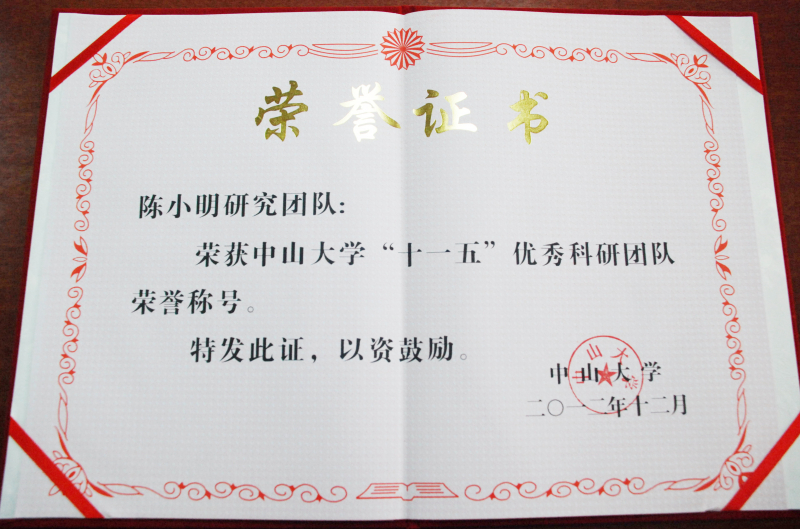 荣誉证书
陈小明研究团队：
荣获中山大学“十一五”优秀科研团队
荣誉称号。
特发此证，以资鼓励。
中山大学
二〇一二年十二月
中山大学